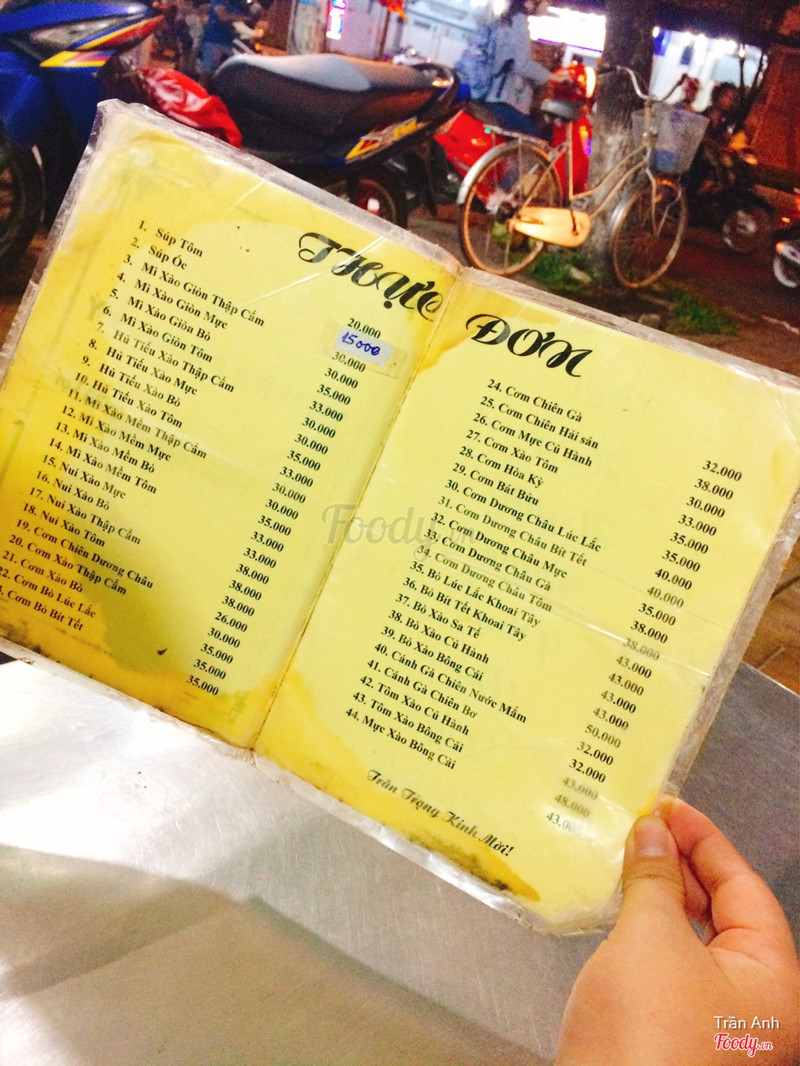 THỰC ĐƠN
1. Súp Tôm 20.000
2. Súp Ốc 15000
3. Mì Xào Giòn Thập Cẩm 30.000
4. Mì Xào Giòn Mực 30.000
5. Mì Xào Giòn Bò 35.000
6. Mì Xào Giòn Tôm 33.000
7. Hủ Tiếu Xào Thập Cẩm 30.000
8. Hủ Tiếu Xào Mực 30.000
9. Hủ Tiếu Xào Bò 35.000
10. Hủ Tiếu Xào Tôm 33.000
11. Mì Xào Mềm Thập Cẩm 30.000
12. Mì Xào Mềm Mực 30.000
13. Mì Xào Mềm Bò 35.000
14. Mì Xào Mềm Tôm 33.000
15. Nui Xào Mực 33.000
16. Nui Xào Bò 38.000
17. Nui Xào Thập Cẩm 38.000
18. Nui Xào Tôm 38.000
19. Cơm Chiên Dương Châu 26.000
20. Cơm Xào Thập Cẩm 30.000
21. Cơm Xào Bò 35.000
22. Cơm Bò Lúc Lắc 35.000
Cơm Bò Bít Tết 35.000
24. Cơm Chiên Gà 32.000
25. Cơm Chiên Hải sản 38.000
26. Cơm Mực Củ Hành 30.000
27. Cơm Xào Tôm 33.000
28. Cơm Hòa Kỳ 35.000
29. Cơm Bát Bửu 35.000
30. Cơm Dương Châu Lúc Lắc 40.000
31. Cơm Dương Châu Bít Tết 40.000
32. Cơm Dương Châu Mực 35.000
33. Cơm Dương Châu Gà 38.000
34. Cơm Dương Châu Tôm 38.000
35. Bò Lúc Lắc Khoai Tây 43.000
36. Bò Bít Tết Khoai Tây 43.000
37. Bò Xào Sa Tế 43.000
38. Bò Xào Củ Hành 43.000
39. Bò Xào Bông Cải 50.000
40. Cánh Gà Chiên Nước Mắm 32.000
41. Cánh Gà Chiên Bơ 32.000
42. Tôm Xào Củ Hành 43.000
43. Tôm Xào Bông Cải 48.000
44. Mực Xào Bông Cải 43.000
Trân Trọng Kính Mời!
Foody.vn
Trần Anh
Foody.vn